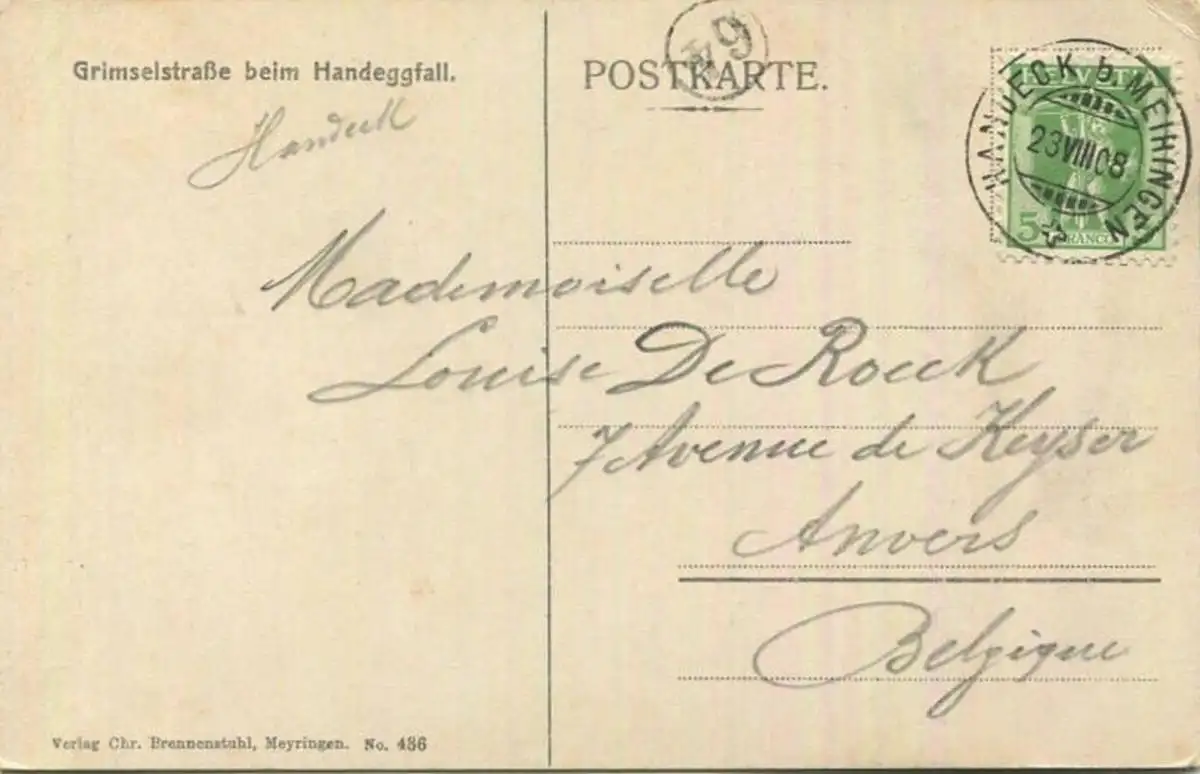 Grimselstraße beim Handeggfall.
Handeck
POSTKARTE.
HELVETIA
HANDECK b. MEIRINGEN
23 VIII 08
5 FRANCO
Mademoiselle
Louise De Roeck
7 Avenue de Keyser
Anvers
Belgique
Verlag Chr. Brennenstuhl, Meyringen. No. 436